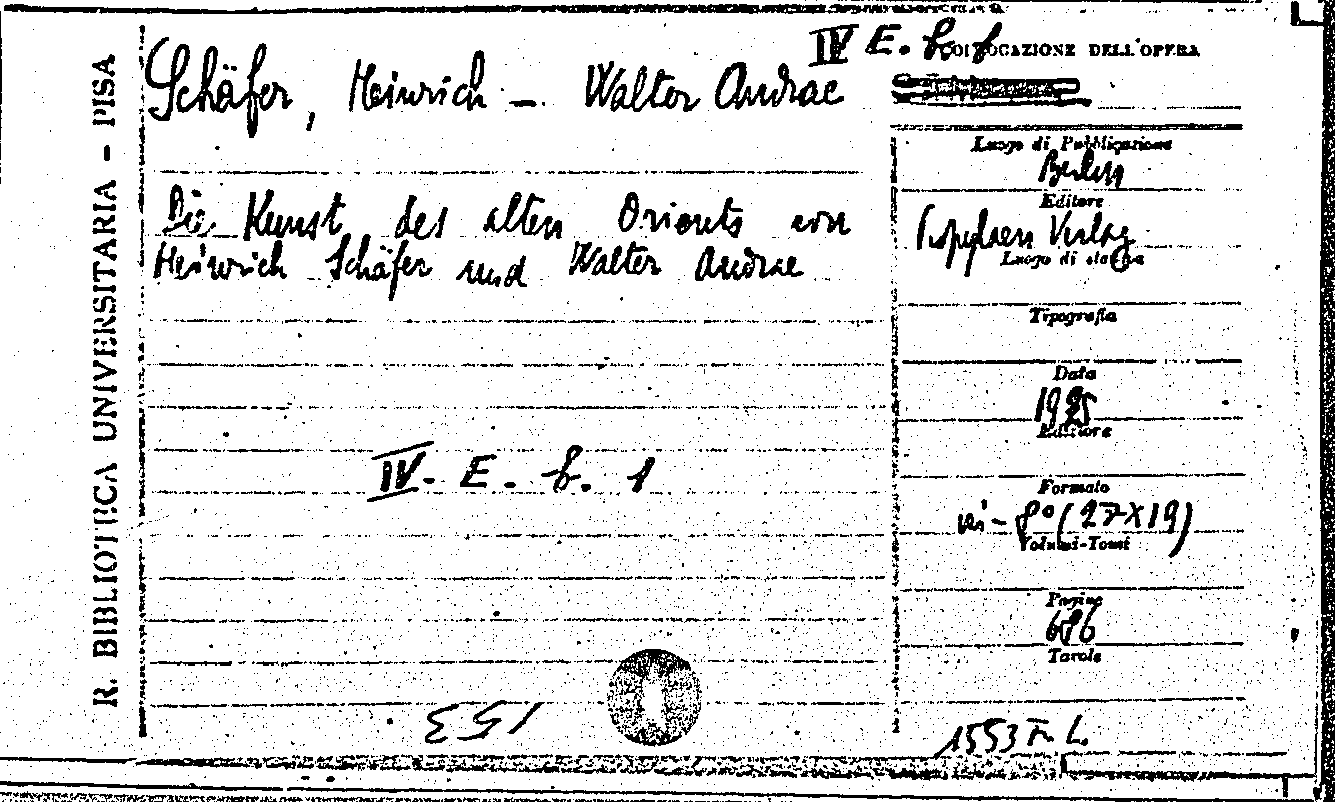 R. BIBLIOTECA UNIVERSITARIA - PISA
IV E. b. 1
COLLOCAZIONE DELL'OPERA
Schäfer, Heinrich - Walter Andrae
Die Kunst des alten Orients von
Heinrich Schäfer und Walter Andrae
IV. E. b. 1
Luogo di Pubblicazione
Berlin
Editore
Propylaen Verlag
Luogo di stampa
Tipografia
Data
1925
Edizione
Formato
in - 8° (27X19)
Volumi-Tomi
Pagine
686
Tavole
1553